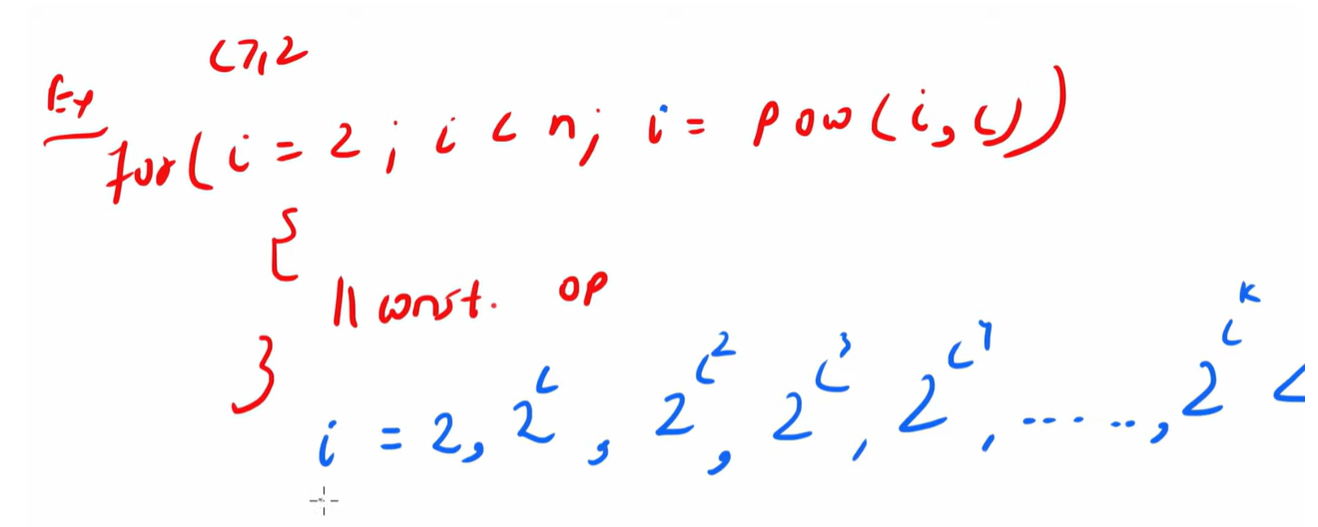 c>,2
Ex
for(i = 2; i < n; i = pow(i, c))
{
// const. op
}
i = 2, 2^c, 2^c^2, 2^c^3, 2^c^4, ....., 2^c^k <